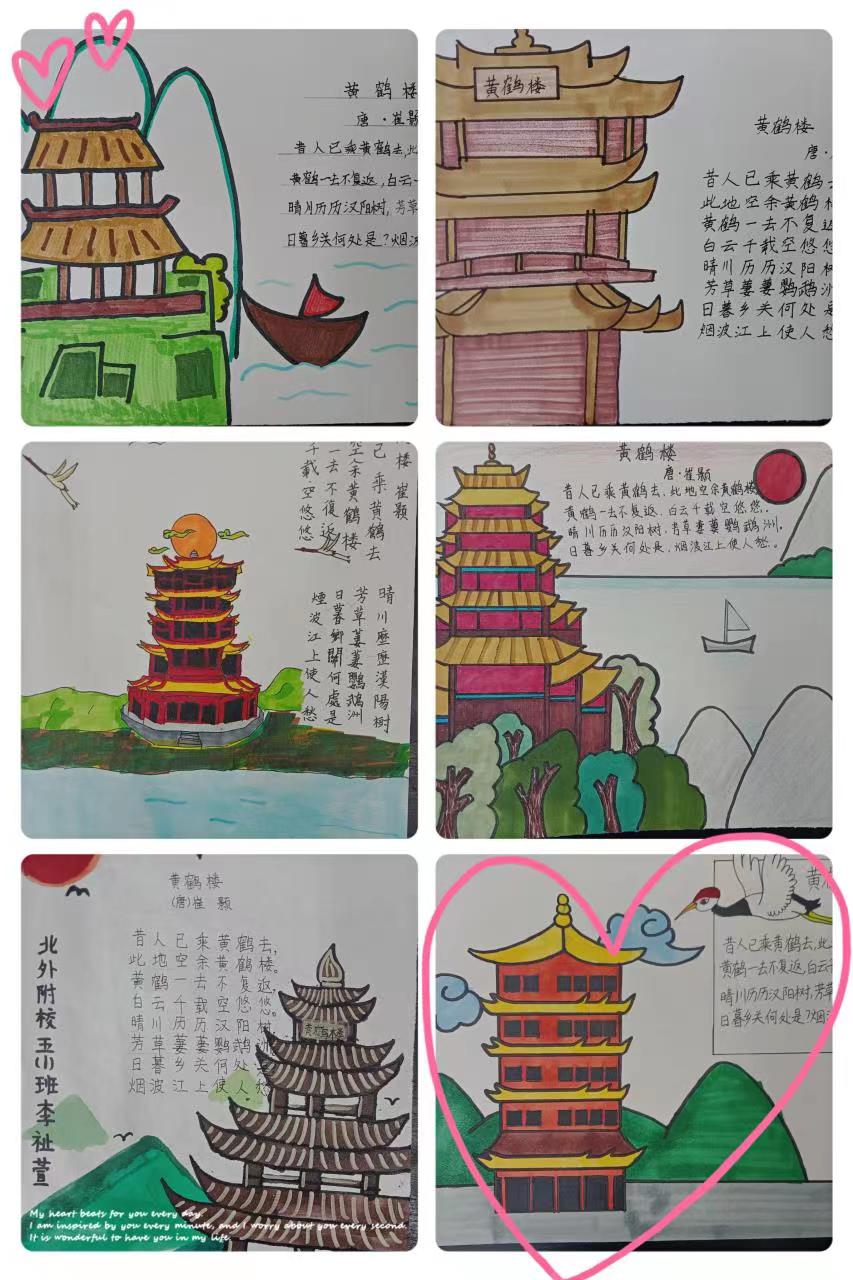 黄鹤楼
唐·崔颢
昔人已乘黄鹤去,此
黄鹤一去不复返,白云一
晴川历历汉阳树,芳草
日暮乡关何处是?烟波
黄鹤楼
黄鹤楼
唐·
昔人已乘黄鹤去
此地空余黄鹤楼
黄鹤一去不复返
白云千载空悠悠
晴川历历汉阳树
芳草萋萋鹦鹉洲
日暮乡关何处是
烟波江上使人愁
楼 崔颢
已乘黄鹤去
空余黄鹤楼
一去不復返
千载空悠悠
晴川歷歷漢陽樹
芳草萋萋鹦鹉洲
日暮鄉關何處是
煙波江上使人愁
黄鹤楼
唐·崔颢
昔人已乘黄鹤去,此地空余黄鹤楼。
黄鹤一去不复返,白云千载空悠悠。
晴川历历汉阳树,芳草萋萋鹦鹉洲。
日暮乡关何处是,烟波江上使人愁。
北外附校五(1)班李祉萱
黄鹤楼
(唐)崔颢
昔人已乘黄鹤去,
此地空余黄鹤楼。
黄鹤一去不复返,
白云千载空悠悠。
晴川历历汉阳树
芳草萋萋鹦鹉洲
日暮乡关何处是
烟波江上使人愁
黄鹤楼
My heart beats for you every day.
I am inspired by you every minute, and I worry about you every second.
It is wonderful to have you in my life.
黄
昔人已乘黄鹤去,此
黄鹤一去不复返,白云千
晴川历历汉阳树,芳草
日暮乡关何处是?烟波